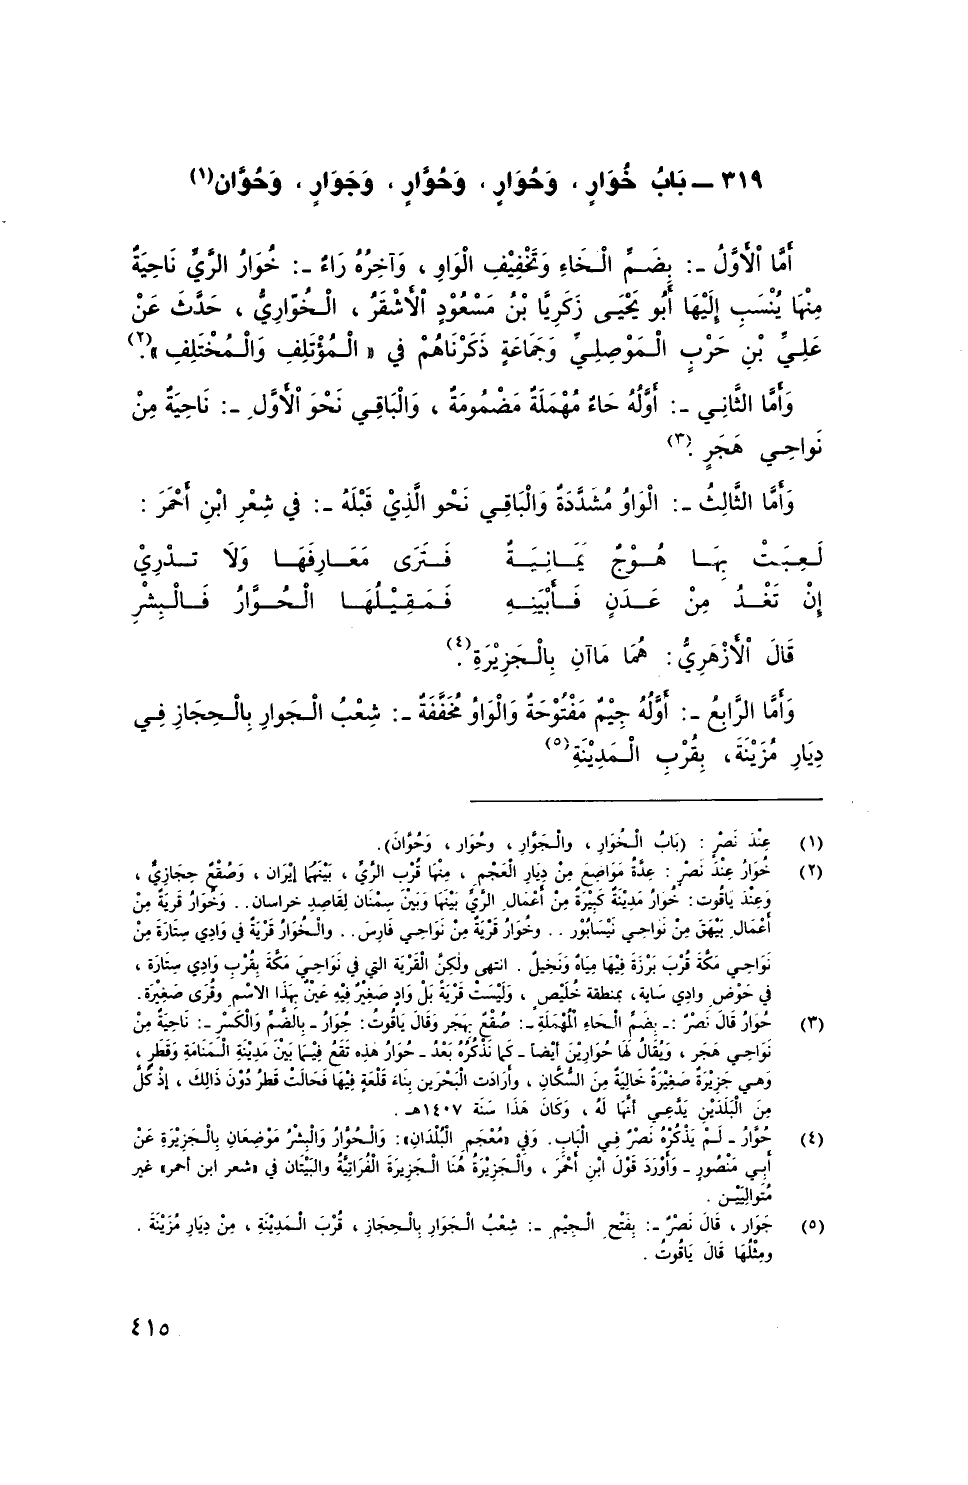 ٣١٩ ــ بَابُ خُوَارٍ ، وَحُوَارٍ ، وَحُوَّارٍ ، وَجَوَارٍ ، وَحُوَّان(١)
أَمَّا الْأَوَّلُ -: بِضَمِّ الْخَاءِ وَتَخْفِيْفِ الْوَاوِ ، وَآخِرُهُ رَاءٌ -: خُوَارُ الرَّيِّ نَاحِيَةٌ
مِنْهَا يُنْسَب إِلَيْهَا أَبُو يَحْيَى زَكَرِيَّا بْنُ مَسْعُوْدٍ الْأَشْقَرُ ، الْخُوَّارِيُّ ، حَدَّثَ عَنْ
عَلِيِّ بْنِ حَرْبٍ الْمَوْصِلِيِّ وَجَمَاعَةٍ ذَكَرْنَاهُمْ فِي « الْمُؤْتَلِفِ وَالْمُخْتَلِفِ »(٢).
وَأَمَّا الثَّانِي -: أَوَّلُهُ حَاءٌ مُهْمَلَةٌ مَضْمُومَةٌ ، وَالْبَاقِي نَحْوَ الْأَوَّلِ -: نَاحِيَةٌ مِنْ
نَواحِي هَجَرٍ .(٣)
وَأَمَّا الثَّالِثُ -: الْوَاوُ مُشَدَّدَةٌ وَالْبَاقِي نَحْو الَّذِيْ قَبْلَهُ -: فِي شِعْرِ ابْنِ أَحْمَرَ :
لَعِبَتْ بِهَا هُوْجٌ يَمَانِيَةٌ فَتَرَى مَعَارِفَهَا وَلَا تَدْرِيْ
إِنْ تَغْدُ مِنْ عَدَنٍ فَأَبْيَنِهِ فَمَقِيْلُهَا الْحُوَّارُ فَالْبِشْرِ
قَالَ الْأَزْهَرِيُّ: هُمَا مَاآنِ بِالْجَزِيْرَةِ(٤).
وَأَمَّا الرَّابِعُ -: أَوَّلُهُ جِيْمٌ مَفْتُوْحَةٌ وَالْوَاوُ مُخَفَّفَةٌ -: شِعْبُ الْجَوارِ بِالْحِجَازِ فِي
دِيَارِ مُزَيْنَةَ، بِقُرْبِ الْمَدِيْنَةِ(٥)
(١) عِنْدَ نَصْرٍ : (بَابُ الْخُوَارِ ، والْجَوَّارِ ، وحُوَار ، وَحُوَّانَ).
(٢) خُوَارُ عِنْدَ نَصْرٍ : عِدَّةُ مَوَاضِعَ مِنْ دِيَارِ الْعَجَمِ ، مِنْهَا قُرْبَ الرَّيِّ ، بَيْنَهُمَا إِيْرَان ، وَصُقْعٌ حِجَازِيٌّ ،
وَعِنْدَ يَاقُوت: خُوَارُ مَدِيْنَةٌ كَبِيْرَةٌ مِنْ أَعْمَالِ الرَّيِّ بَيْنَهَا وَبَيْنَ سِمْنَان لِقَاصِدِ خراسان.. وَخُوَارُ قَرْيَةٌ مِنْ
أَعْمَالِ بَيْهَقَ مِنْ نواحِي نَيْسَابُوْر .. وخُوَار قَرْيَةٌ مِنْ نَوَاحِي فَارِسَ.. والْخُوَارُ قَرْيَةٌ فِي وَادِي سِتَارَةَ مِنْ
نَوَاحِي مَكَّةَ قُرْبَ بَرْزَةَ فِيْهَا مِيَاهٌ وَنَخِيلٌ . انتهى ولَكِنَّ الْقَرْيَة الَّتِي فِي نَوَاحِيَ مَكَّةَ بِقُرْبِ وَادِي سِتَارَة ،
فِي حَوْضِ وادِي سَايَة، بِمَنطِقة خُلَيْصٍ ، وَلَيْسَتْ قَرْيَةً بَلْ وَادٍ صَغِيْرٌ فِيْهِ عَيْنٌ بِهَذَا الاسْمِ وقُرًى صَغِيْرَة.
(٣) حُوَارُ قَالَ نَصْرٌ :- بِضَمِّ الْحَاءِ الْمُهْمَلَةِ -: صُقْعٌ بِهَجَر وَقَالَ يَاقُوتُ: حُِوَارُ - بِالضَّمِّ وَالْكَسْرِ -: نَاحِيَةٌ مِنْ
نَوَاحِي هَجَر ، وَيُقَالُ لَهَا حُوَارِيْنَ أَيْضًا - كَمَا نَذْكُرُهُ بَعْدُ - حُوَارُ هَذِهِ تَقَعُ فِيْمَا بَيْنَ مَدِيْنَةِ الْمَنَامَةِ وَقَطَر ،
وَهِي جَزِيْرَةٌ صَغِيْرَةٌ خَالِيَةٌ مِنَ السُّكَّانِ ، وأَرَادَت الْبَحْرَين بِنَاءَ قَلْعَةٍ فِيْهَا فَحَالَتْ قَطَرُ دُوْنَ ذَالِكَ ، إِذْ كُلٌّ
مِنَ الْبَلَدَيْنِ يَدَّعِي أَنَّهَا لَهُ ، وَكَانَ هَذَا سَنَةَ ١٤٠٧هـ .
(٤) حُوَّارُ - لَمْ يَذْكُرْهُ نَصْرٌ فِي الْبَابِ. وَفِي «مُعْجَمِ الْبُلْدَانِ»: وَالْحُوَّارُ وَالْبِشْرُ مَوْضِعَانِ بِالْجَزِيْرَةِ عَنْ
أَبِي مَنْصُورٍ - وَأَوْرَدَ قَوْلَ ابْنِ أَحْمَرَ ، والْجَزِيْرَةُ هُنَا الْجَزِيرَةَ الْفُرَاتِيَّةُ والبَيْتَان فِي «شعر ابن أحمر» غير
مُتَوَالِيَيْن .
(٥) جَوَار ، قَالَ نَصْرٌ -: بِفَتْحِ الْجِيْمِ -: شِعْبُ الْجَوَارِ بِالْحِجَازِ ، قُرْبَ الْمَدِيْنَةِ ، مِنْ دِيَارِ مُزَيْنَةَ .
ومِثْلُهَا قَالَ يَاقُوتُ .
٤١٥